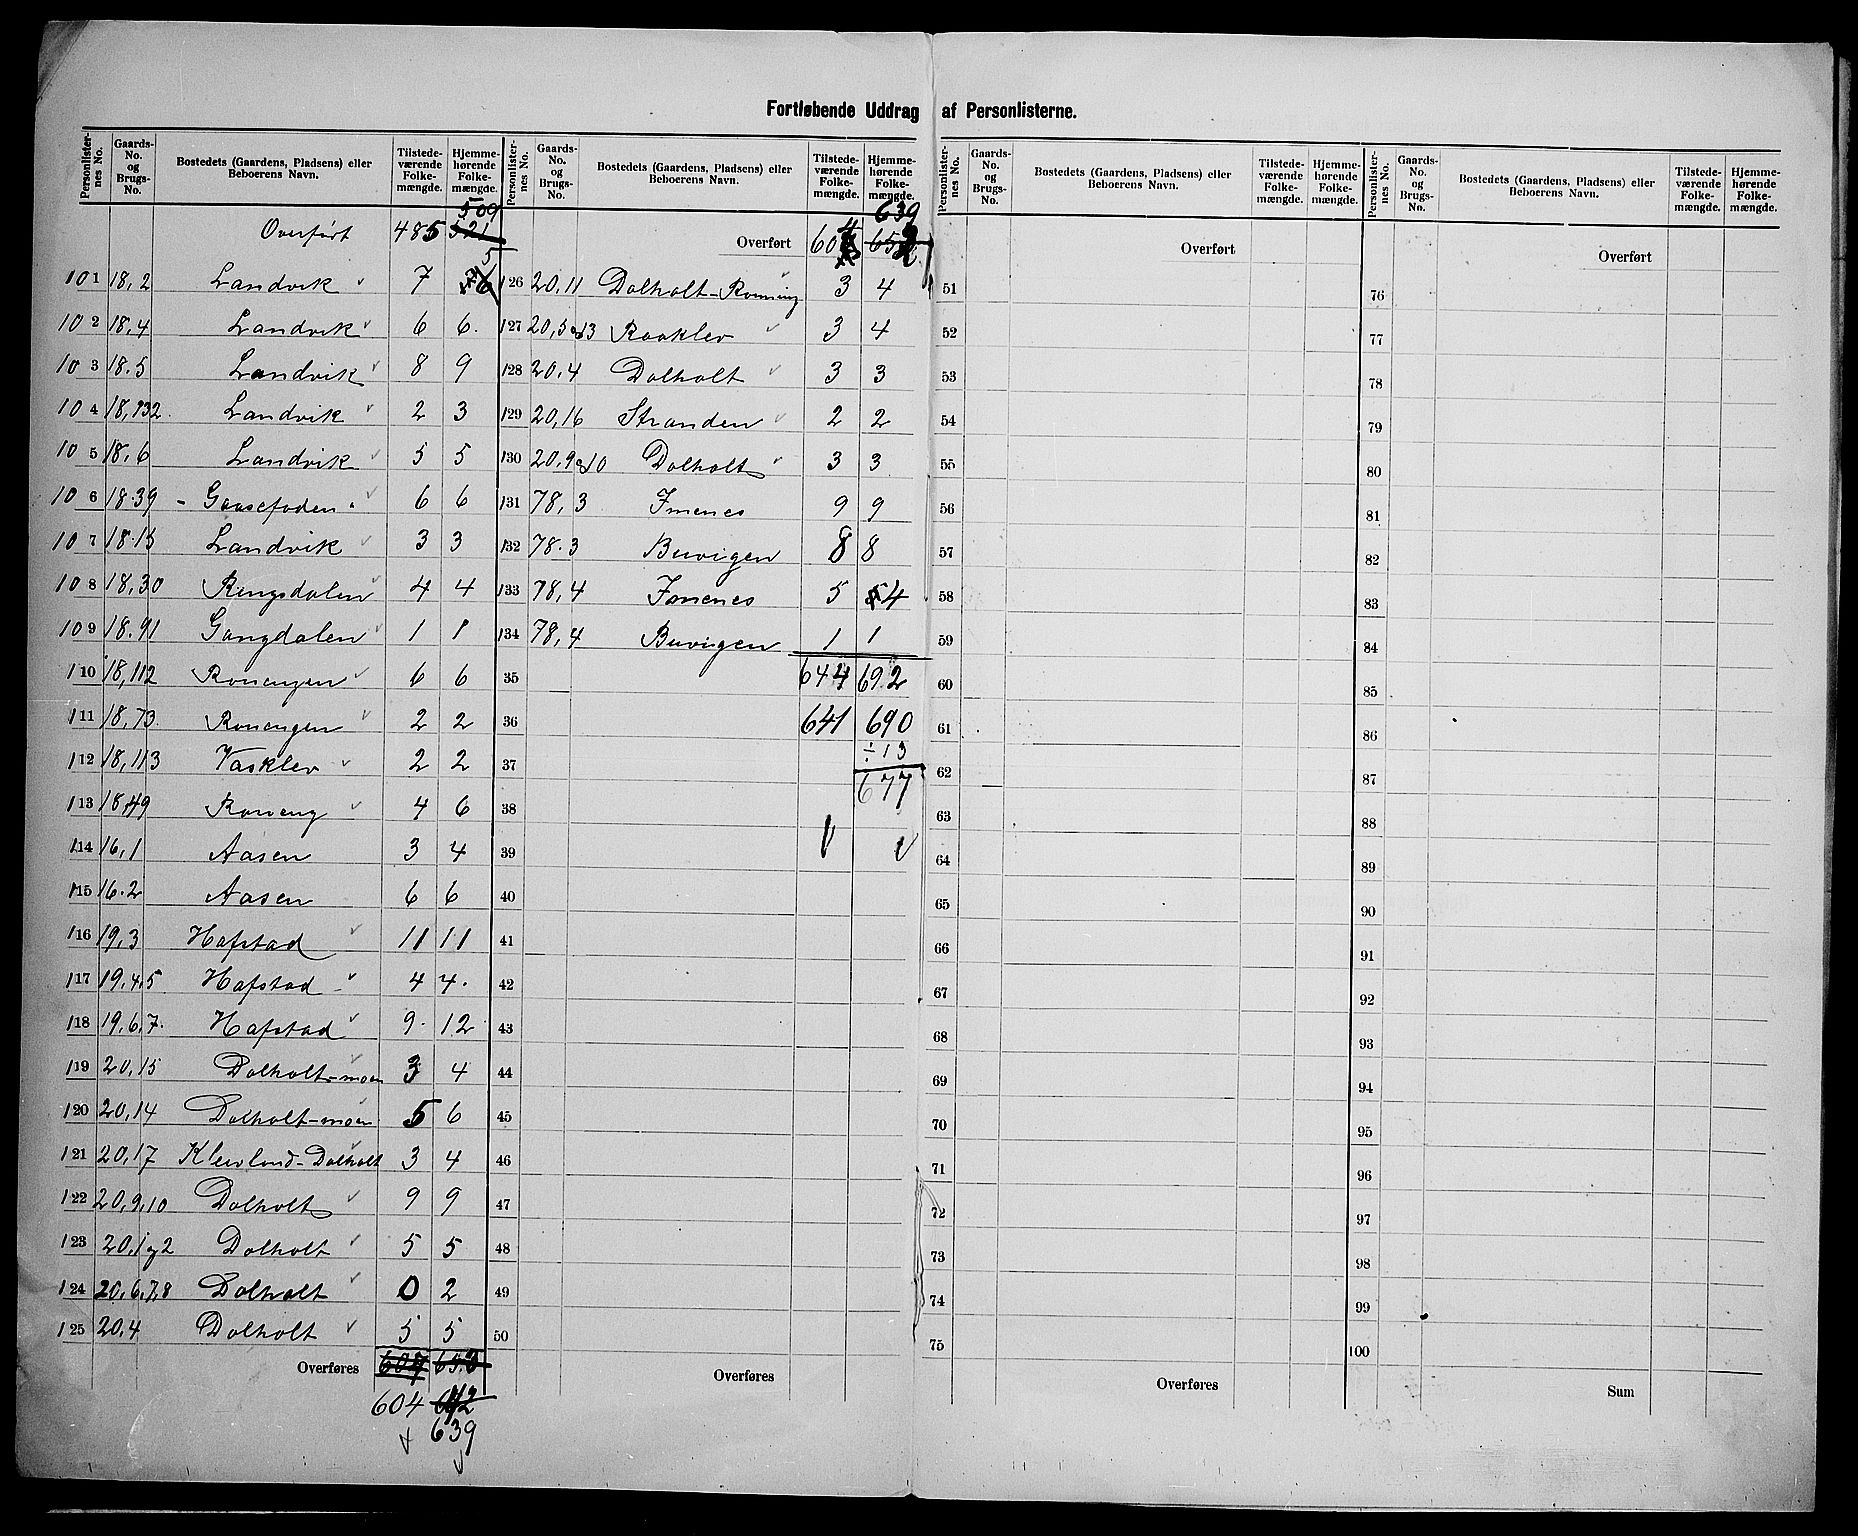 Fortløbende Uddrag af Personlisternes.
Personlister-nes No. Gaards-No. og Brugs-No. Bostedets (Gaardens, Pladsens) eller Beboerens Navn. Tilstede-værende Folke-mængde. Hjemme-hørende Folke-mængde.
Overført 485 521 509
101 18,2 Landvik 7 5
102 18,4 Landvik 6 6.
103 18.5 Landvik 8 9
104 18,132. Landvik 2 3
105 18,6 Landvik 5 5
106 18.39 - Gaasefoden. 6 6
107 18.15 Landvik 3 3
108 18,30 Ringsdalen 4 4
109 18.91 Gangdalen 1 1
110 18,112 Ronengen 6 6
111 18,73. Ronengen 2 2
112 18,113 Vasklev 2 2
113 18,49 Roneng 4 6
114 16,1 Aasen 3 4
115 16.2 Aasen 6 6
116 19,3 Hafstad 11 11
117 19,4,5 Hafstad 4 4.
118 19,6,7. Hafstad 9. 12
119 20,15 Dolholt-moen 3 4
120 20,14 Dolholt-moen 5 6
121 20,17 Klevland-Dolholt 3 4
122 20,9,10 Dolholt 9 9
123 20,1 og 2 Dolholt 5 5
124 20,6,7,8 Dolholt 0 2
125 20,4 Dolholt 5 5
Overføres 607 653
604 642
639
Personlister-nes No. Gaards-No. og Brugs-No. Bostedets (Gaardens, Pladsens) eller Beboerens Navn. Tilstede-værende Folke-mængde. Hjemme-hørende Folke-mængde.
639
Overført 604 652
126 20,11 Dolholt-Ronning 3 4
127 20,5 og 13 Raaklev 3 4
128 20,4 Dolholt 3 3
129 20,16 Stranden 2 2
130 20,9 og 10 Dolholt 3 3
131 78,3 Imenes 9 9
132 78.3 Buvigen 8 8
133 78,4 Imenes 5 4
134 78,4 Buvigen 1 1
35 644 692
36 641 690
÷13
37 677
38
39
40
41
42
43
44
45
46
47
48
49
50
Overføres
Personlister-nes No. Gaards-No. og Brugs-No. Bostedets (Gaardens, Pladsens) eller Beboerens Navn. Tilstede-værende Folke-mængde. Hjemme-hørende Folke-mængde.
Overført
51
52
53
54
55
56
57
58
59
60
61
62
63
64
65
66
67
68
69
70
71
72
73
74
75
Overføres
Personlister-nes No. Gaards-No. og Brugs-No. Bostedets (Gaardens, Pladsens) eller Beboerens Navn. Tilstede-værende Folke-mængde. Hjemme-hørende Folke-mængde.
Overført
76
77
78
79
80
81
82
83
84
85
86
87
88
89
90
91
92
93
94
95
96
97
98
99
100
Sum